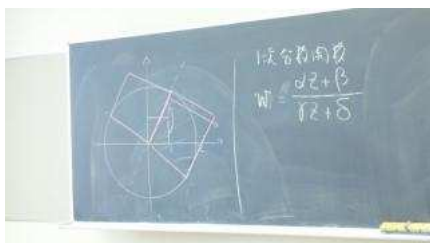 1次分数関数
w = αz+β
γz+δ